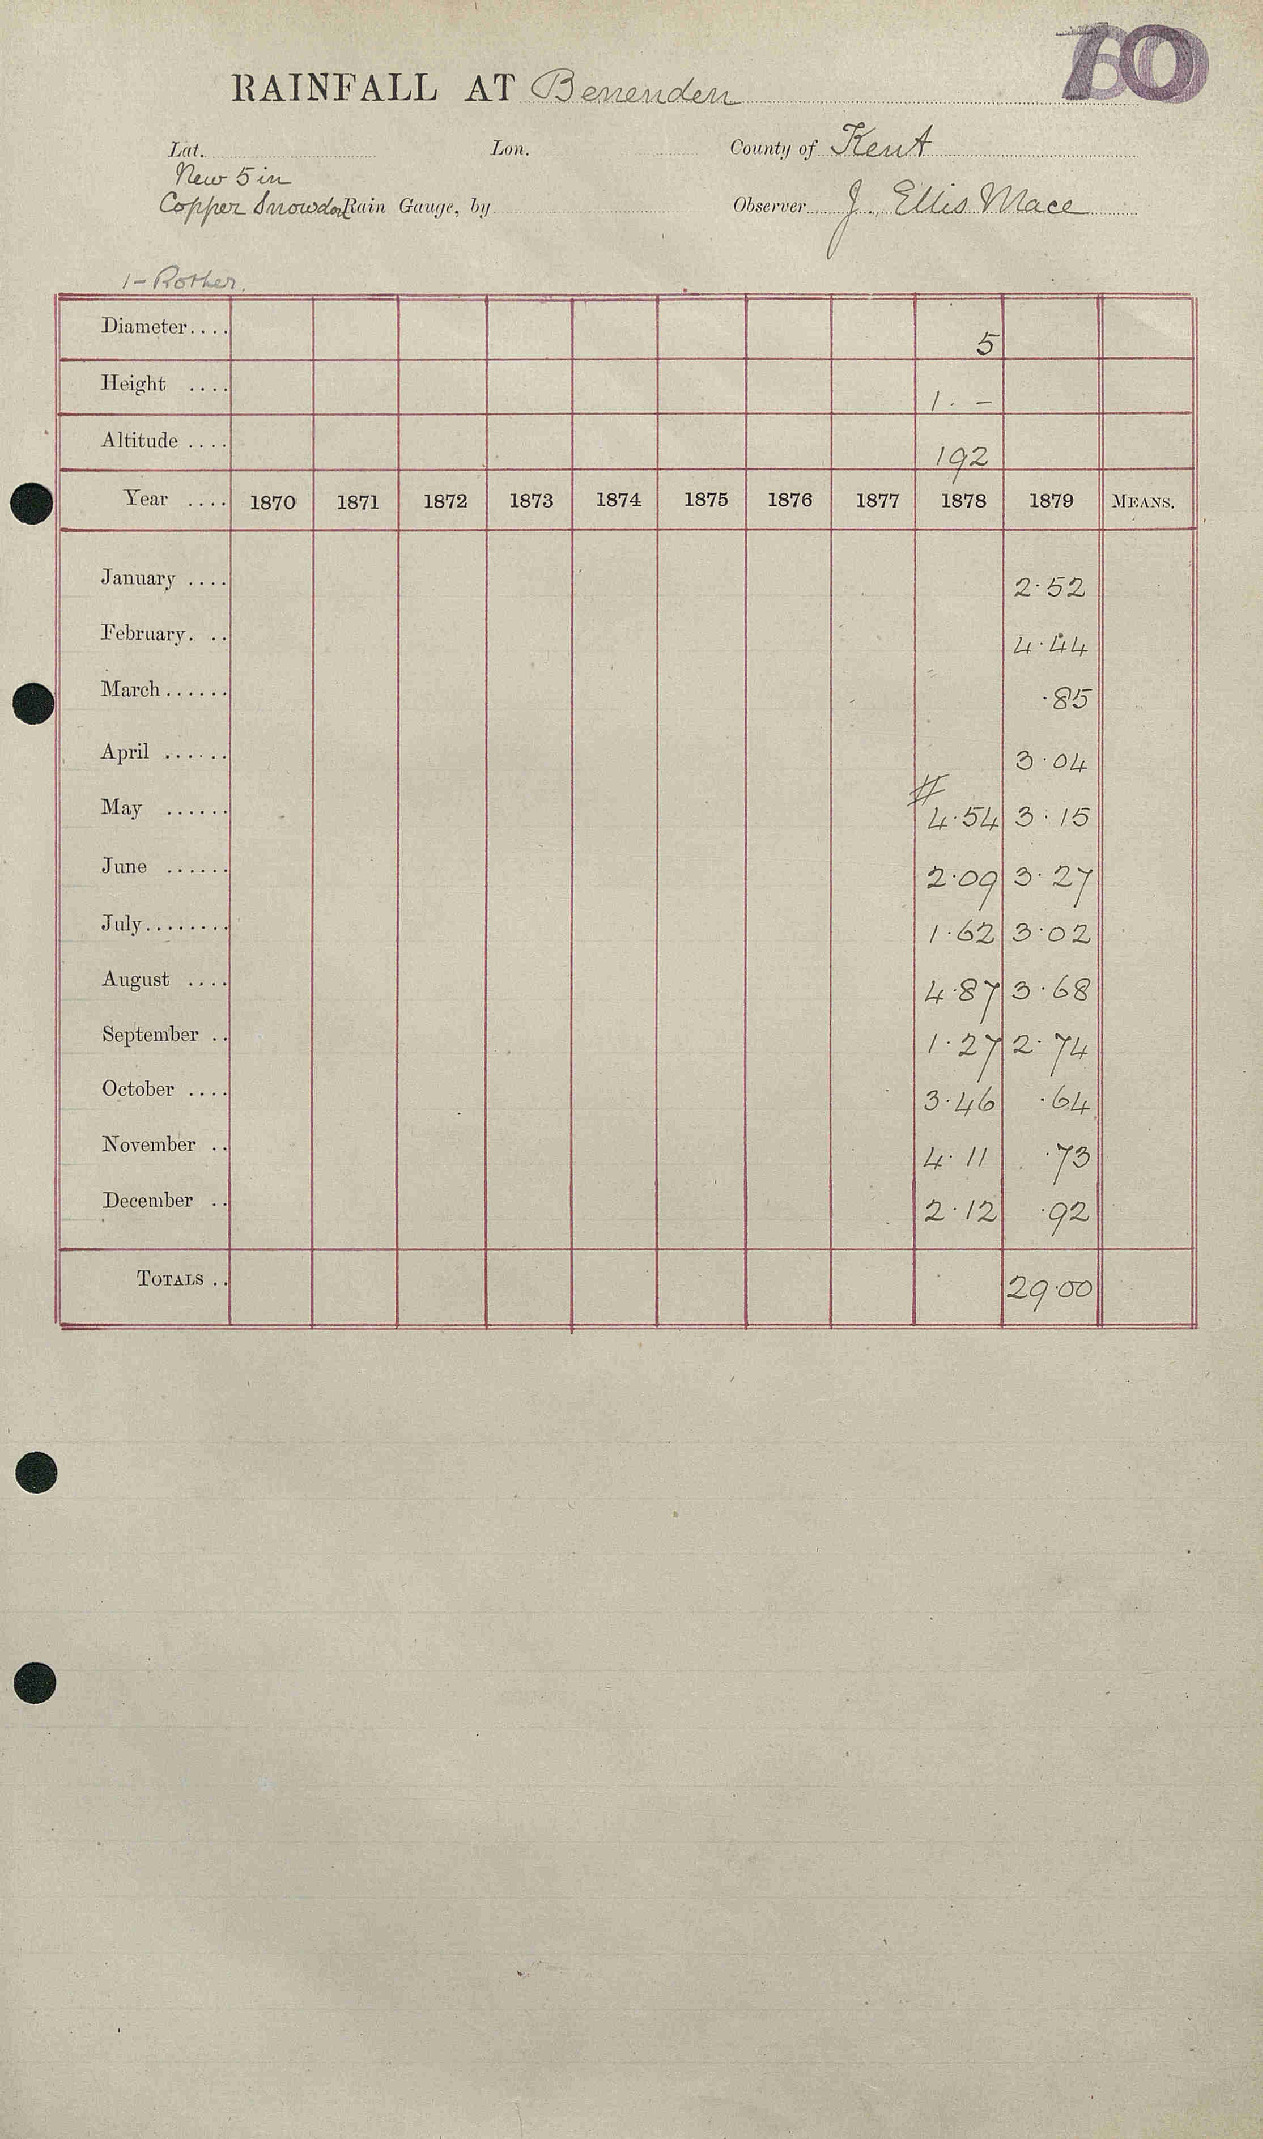 RAINFALL AT Benenden
Lat. Lon. County of Kent
New 5 in
Copper Snowdon Rain Gauge, by Observer J. Ellis Mace
1 - Rother.
Diameter.... 5
Height .... 1. -
Altitude .... 192
Year .... 1870 1871 1872 1873 1874 1875 1876 1877 1878 1879 MEANS.
January .... 2.52
February. .. 4.44
March...... .85
April ...... 3.04
#
May ...... 4.54 3.15
June ...... 2.09 3.27
July........ 1.62 3.02
August .... 4.87 3.68
September .. 1.27 2.74
October .... 3.46 .64
November .. 4.11 .73
December .. 2.12 .92
TOTALS .. 29.00